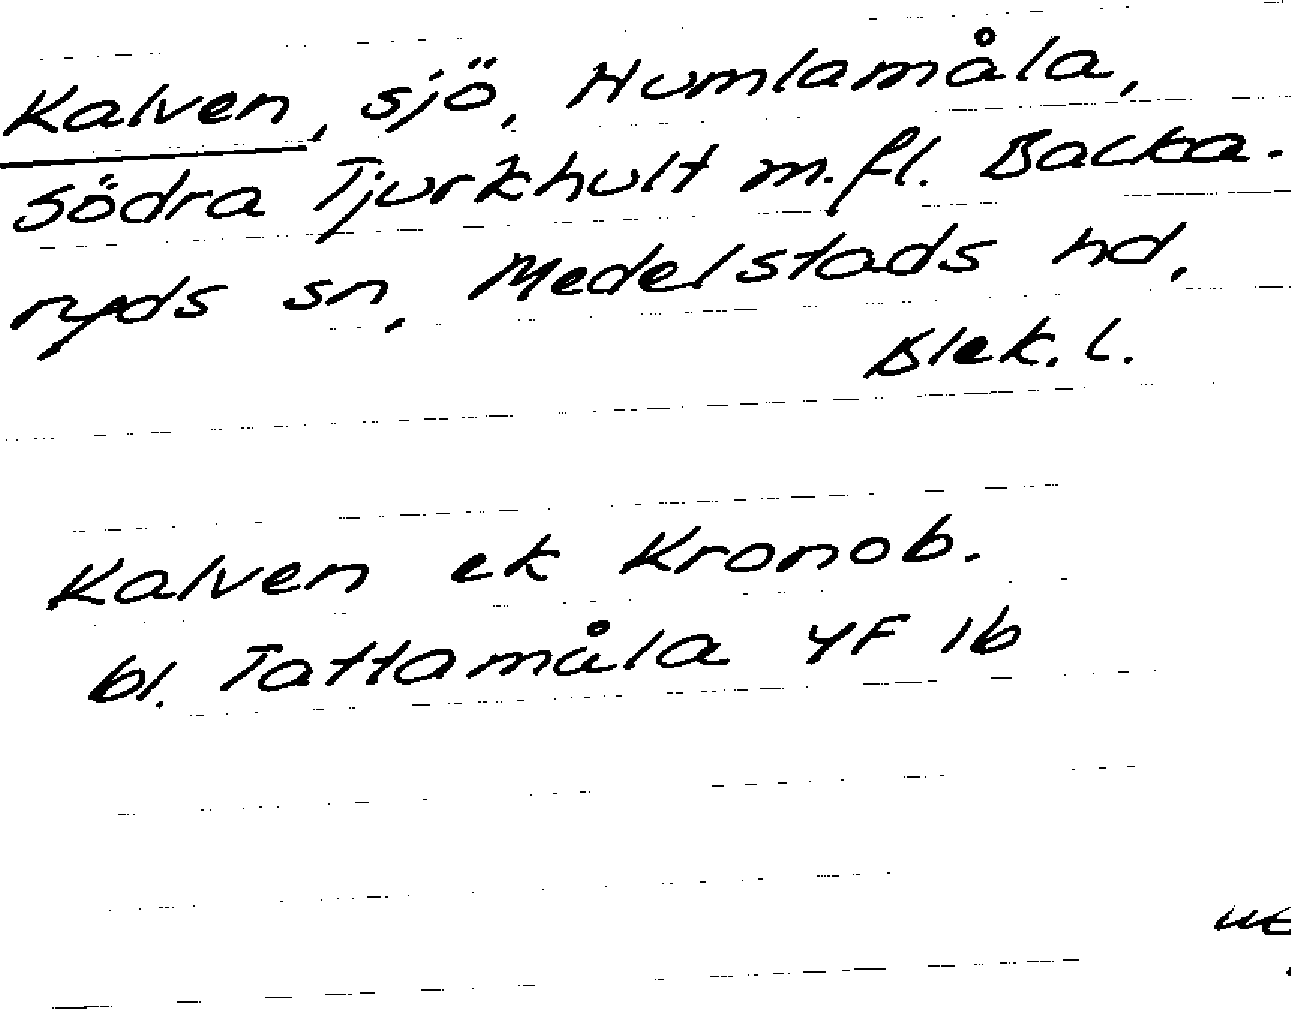 Kalven, sjö, Humlamåla,
Södra Tjurkhult m.fl. Backa-
ryds sn, Medelstads hd,
Blek. l.
Kalven ek Kronob.
bl. Tattamåla 4F 1b